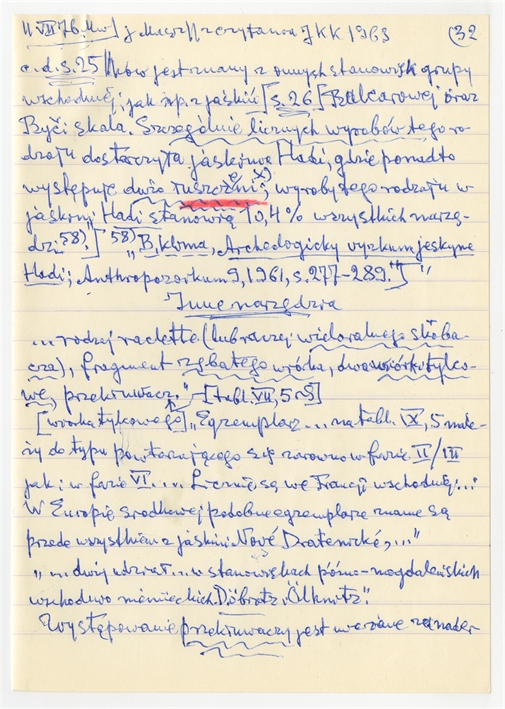 11 VII 76. Mw] j. Masz// z czytania JKK 1963 (32
c.d. s.25] "ków jest znany z innych stanowisk grupy
wschodniej, jak np. z jaskiń [s.26] Balcarowej oraz
Byči skala. Szczególnie licznych wyrobów tego ro-
dzaju dostarczyła jaskinia Hadi, gdzie ponadto
występuje dużo tuszczni x); wyroby tego rodzaju w
jaskini Hadi stanowią 10,4% wszystkich narzę-
dzi 58)." ["58) B. Klima, Archeologicky vyzkum jeskyne
Hadi; Anthropozoikum 9, 1961, s. 277-289."]"
Inne narzędzia
"...rodzaj raclette (lub raczej wieloralnego skroba-
cza), fragment zębatego wióra, dwa wiórki tylco-
we, przekłuwacz." - [tabl. VII, 5 rS]
[wiórka tylcowego] "Egzemplarz ... na tabl. IX, 5 nale-
ży do typu powtarzającego się zarówno w fazie II/III
jak i w fazie VI .... Liczne są we Francji wschodniej ...:
W Europie środkowej podobne egzemplarze znane są
przede wszystkiem z jaskini Nové Dratenické, ..."
"... dwój udział ... w stanowiskach późno-magdaleńskich
wschodnio niemieckich Döbritz i Ölknitz".
Występowanie przekłuwaczy jest uważane za nader